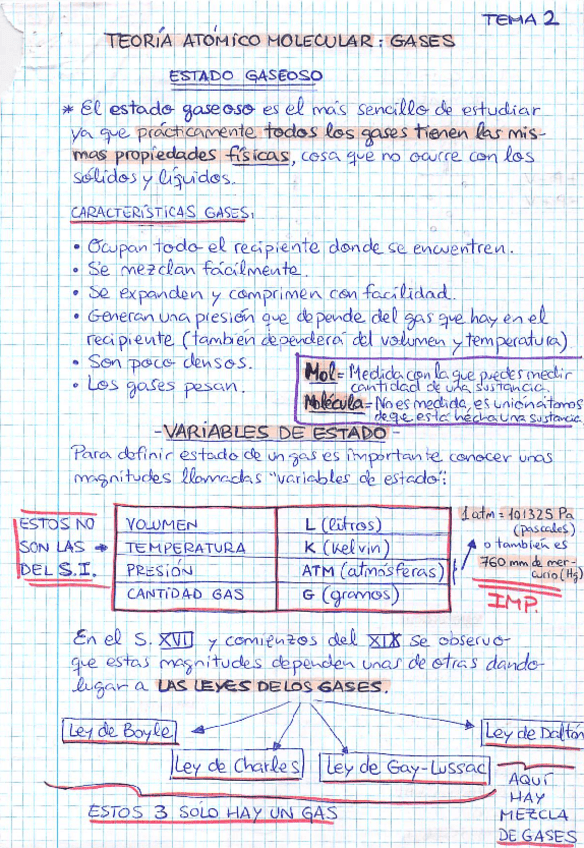 TEMA 2
TEORÍA ATÓMICO MOLECULAR: GASES
ESTADO GASEOSO
* El estado gaseoso es el más sencillo de estudiar
ya que prácticamente todos los gases tienen las mis-
mas propiedades físicas, cosa que no ocurre con los
sólidos y líquidos.
CARACTERÍSTICAS GASES:
• Ocupan todo el recipiente donde se encuentren.
• Se mezclan fácilmente.
• Se expanden y comprimen con facilidad.
• Generan una presión que depende del gas que hay en el
recipiente (también dependerá del volumen y temperatura)
• Son poco densos.
• Los gases pesan.
Mol = Medida con la que puedes medir
cantidad de una sustancia.
Molécula = No es medida, es unión átomos
de que está hecha una sustancia
- VARIABLES DE ESTADO -
Para definir estado de un gas es importante conocer unas
magnitudes llamadas "variables de estado":
ESTOS NO
SON LAS →
DEL S.I.
VOLUMEN L (litros)
TEMPERATURA K (kelvin)
PRESIÓN ATM (atmósferas)
CANTIDAD GAS G (gramos)
1 atm = 101325 Pa
(pascales)
o también es
760 mm de mer-
curio (Hg)
IMP.
En el S. XVII y comienzos del XIX se observo
que estas magnitudes dependen unas de otras dando
lugar a LAS LEYES DE LOS GASES.
Ley de Boyle
Ley de Charles
Ley de Gay-Lussac
Ley de Daltón
ESTOS 3 SÓLO HAY UN GAS
AQUÍ
HAY
MEZCLA
DE GASES